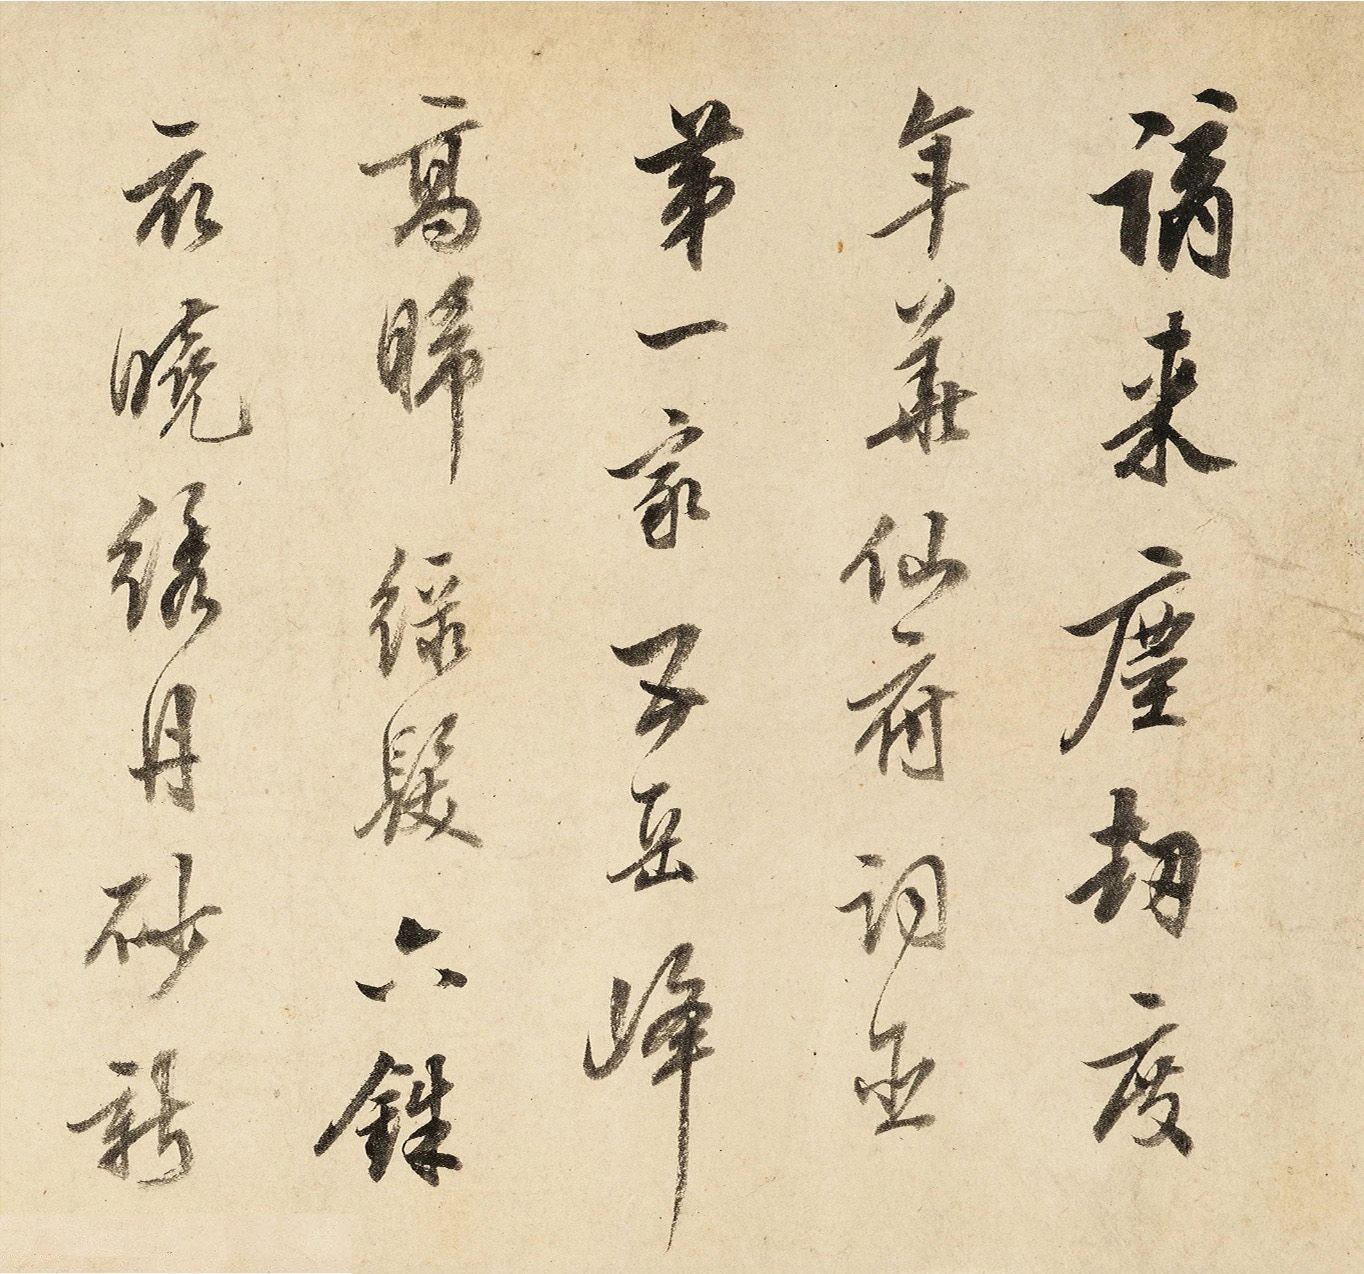 謫来塵劫度
年華仙府詞臣
第一家五岳峰
高晞綠髮六銖
衣曉繡丹砂新